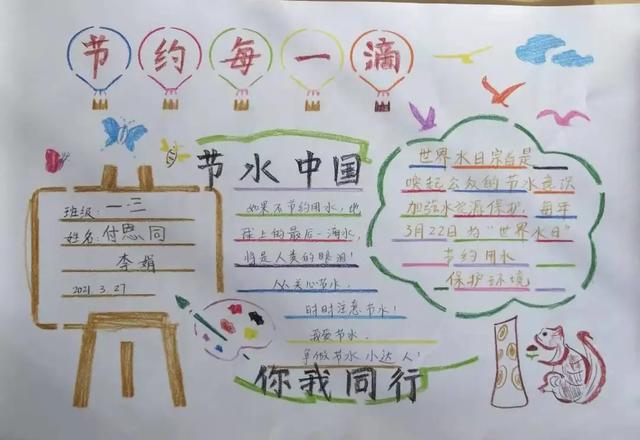 节约每一滴
节水中国
班级：一.三
姓名：付思同
李娟
2021.3.27
如果不节约用水，地
球上的最后一滴水，
将是人类的眼泪！
从关心节水，
时时注意节水！
我要节水，
争做节水小达人！
世界水日宗旨是
唤起公众的节水意识
加强水资源保护，每年
3月22日为“世界水日”
节约用水
保护环境
你我同行